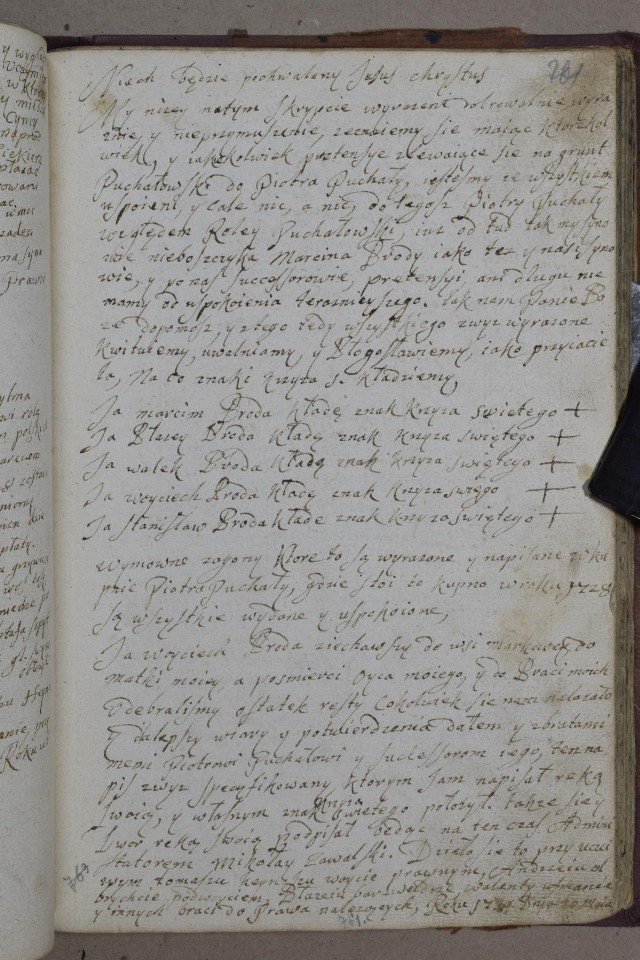 Niech będzie pochwalony Jesus chrystus
781
My nizey natym skrypcie wyrazeni dobrowolnie wyra
znie, y nieprzymuszenie, zeznaiemy sie maiąc ktorzkol
wiek, y iakokolwiek pretensye zlewaiące sie na grunt
Puchałowski do Piotra Puchały, iestesmy ze wszystkiem
uspoieni, y cale nic, a nic, do tegosz Piotry Puchały
względem Roley Puchałowski, iuz od tad tak my syno
wie nieboszczyka Marcina Brody iako tez y nasi syno
wie, y po nas successorowie, pretensyi, ani długu nie
mamy od uspokoienia teraznieyszego. tak nam Panie Bo
ze dopomosz, y z tego tedy wszystkiego zwysz wyrazone
kwituiemy, uwolniamy, y Błogosławiemy, iako przyiacie
la, Na co znaki krzyza s. kładziemy,
Ja marcim Broda kładę znak krzyza swietego +
Ja Błazey Broda kładę znak krzyza swiętego +
Ja walek Broda kładę znak krzyza swiętego +
Ja woyciech Broda kładę znak krzyza swięgo +
Ja stanisław Broda kładę znak krzyza swiętego +
wymowne zagony ktore to są wyrazone y napisane w ku
pnie Piotra Puchały, gdzie stoi to kupno w roku 1728
są wszystkie wydane y uspokoione,
Ja woyciech Broda ziechawszy do wsi markowey do
matki moiey, a posmierci oyca moiego, y do Braci moich
odebralismy ostatek resty cokolwiek sie nam nalezało
dalepszy wiary y potwierdzenia dałem y zbratami
memi Piotrowi Puchałowi y successorom iego, ten na
pis zwysz specyfikowany, ktorym sam napisał ręką
swoią, y własnym znak krzyza swietego połozył. takze sie y
Dwor ręką swoią podpisał będąc na ten czas Admini
stratorem Mikołay Zawalski. Działo sie to przy uczci
wym tomaszu woycie prawnym, Andrzeiu ol
brychcie podwoyciem, Błazeiu walenty
y innych braci do Prawa nalezących, Roku
764
781.